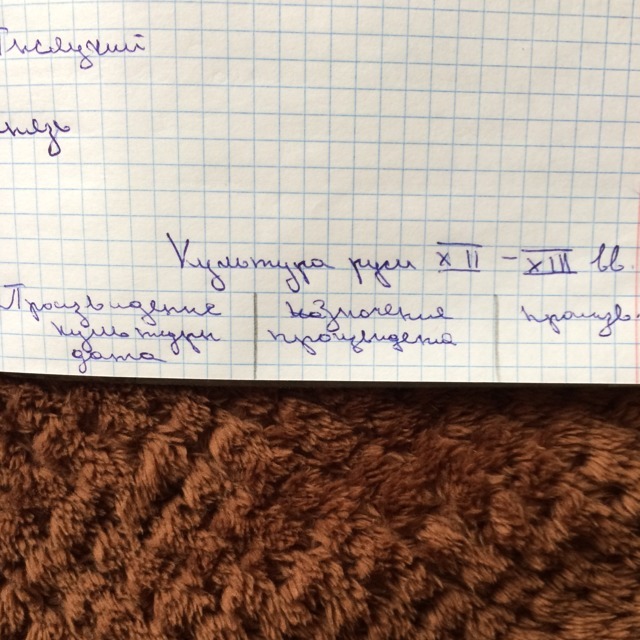 Тысяцкий
князь
Культура руси XII - XIII вв.
Произведение культуры дата
назначения произведена
произв.